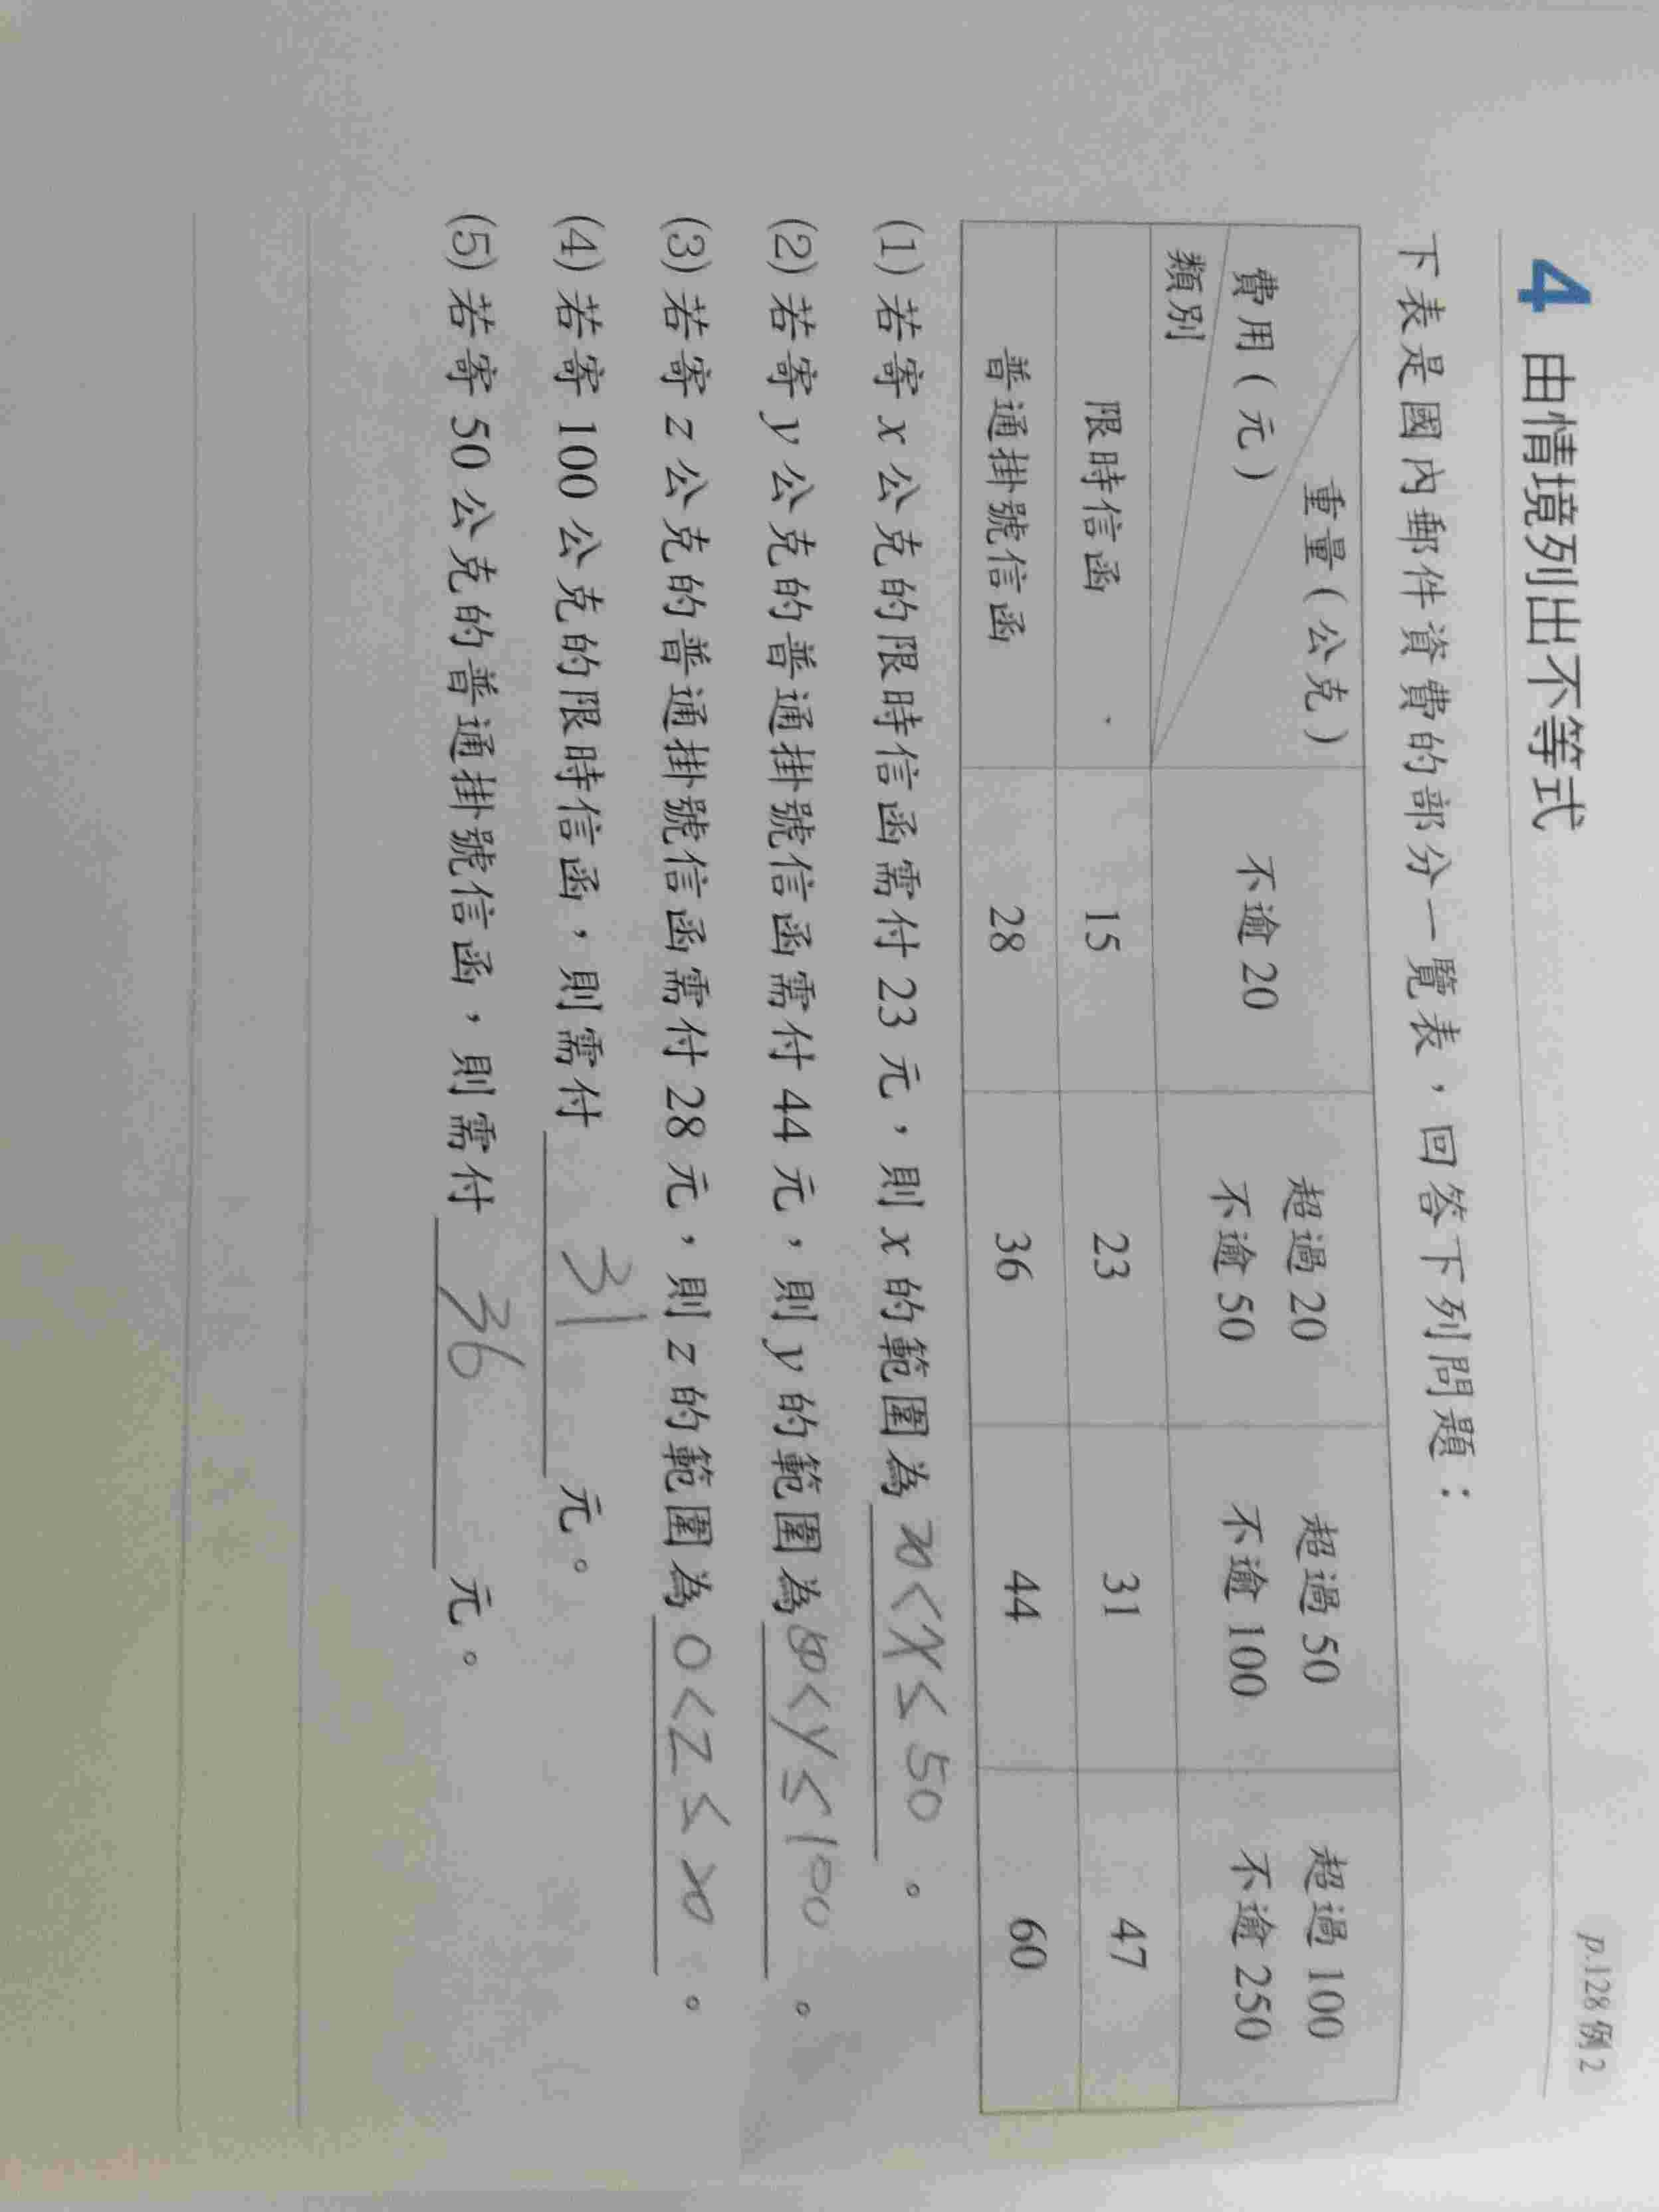 4 由情境列出不等式
p.128 例 2
下表是國內郵件資費的部分一覽表，回答下列問題：
重量(公克)
費用(元)
類別
不逾 20
超過 20
不逾 50
超過 50
不逾 100
超過 100
不逾 250
限時信函 15 23 31 47
普通掛號信函 28 36 44 60
(1) 若寄 x 公克的限時信函需付 23 元，則 x 的範圍為 20<x≤50。
(2) 若寄 y 公克的普通掛號信函需付 44 元，則 y 的範圍為 50<y≤100。
(3) 若寄 z 公克的普通掛號信函需付 28 元，則 z 的範圍為 0<z≤20。
(4) 若寄 100 公克的限時信函，則需付 31 元。
(5) 若寄 50 公克的普通掛號信函，則需付 36 元。